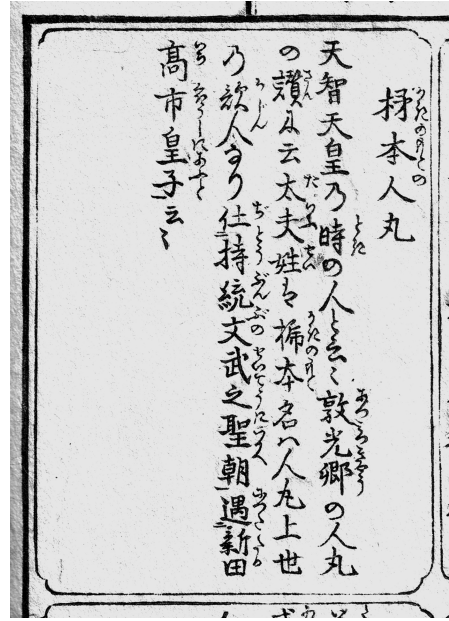 柹本人丸
天智天皇乃時の人と云〻敦光郷の人丸
の讃に云太夫姓は柹本名ハ人丸上世
乃歌人なり仕持統文武之聖朝遇新田
高市皇子云〻